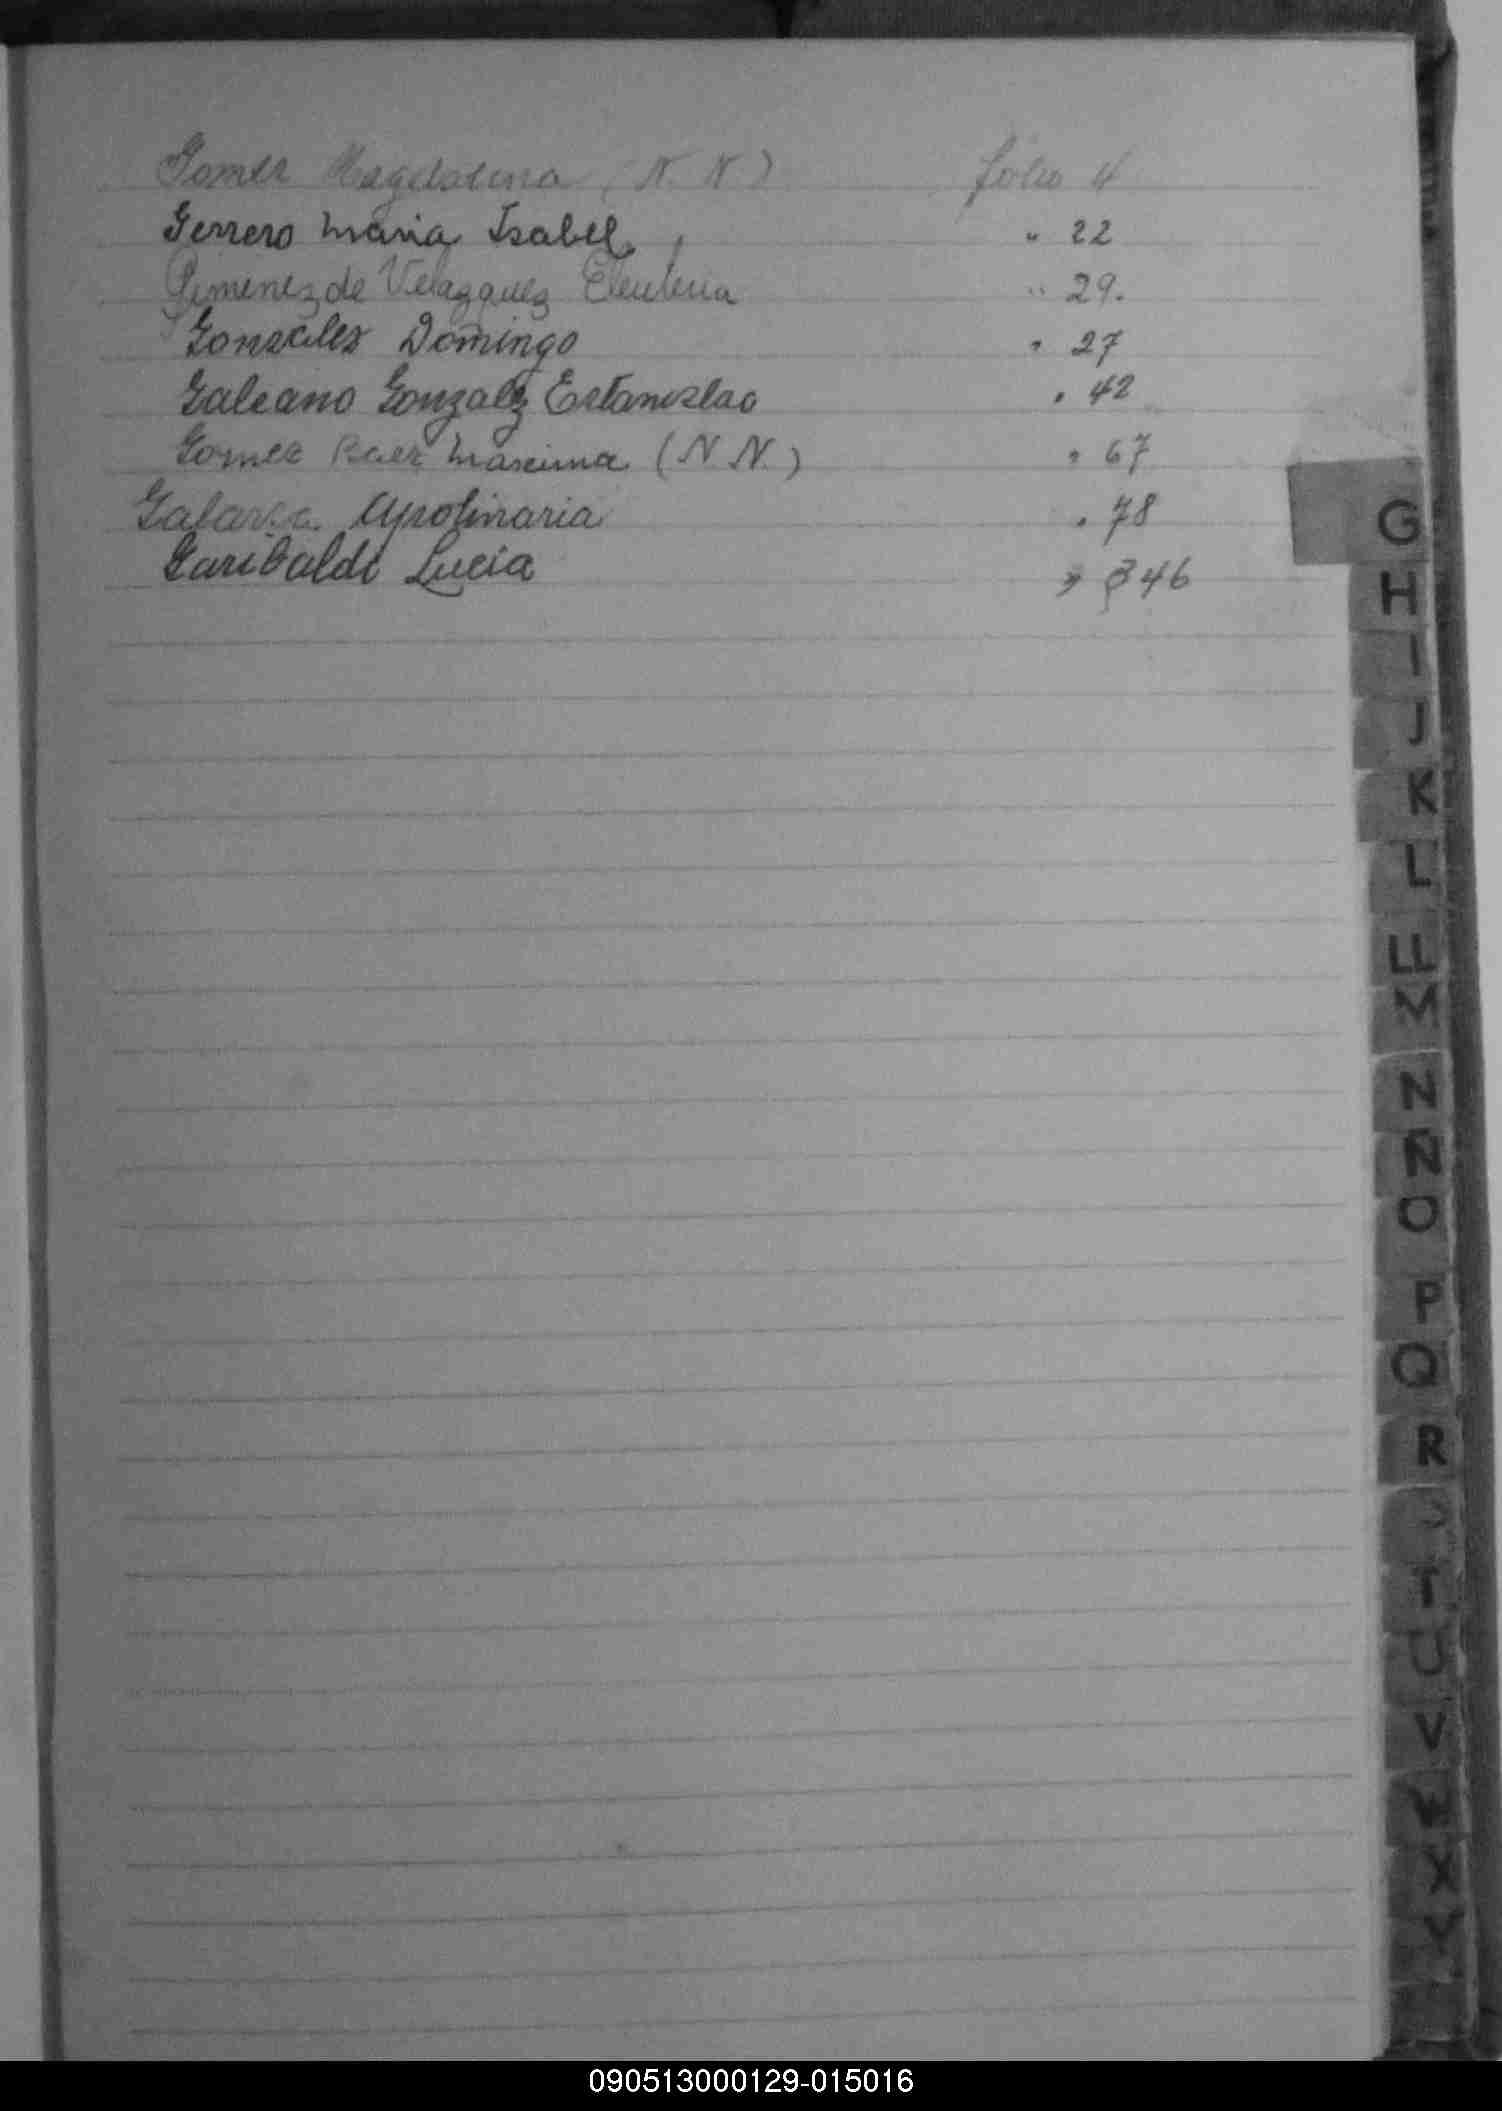 Gomez Magdalena (N. N.) folio 4
Gerrero Maria Isabel " 22
Gimenez de Velazquez Eleuteria " 29.
Gonzalez Domingo " 27
Galeano Gonzalez Estanislao " 42
Gomez Baez Maxima (N N.) " 67
Galarza Apolinaria " 78
Garibaldi Lucia " 346
G
H
I
J
K
L
LL
M
N
Ñ
O
P
Q
R
S
T
U
V
W
X
Y
090513000129-015016